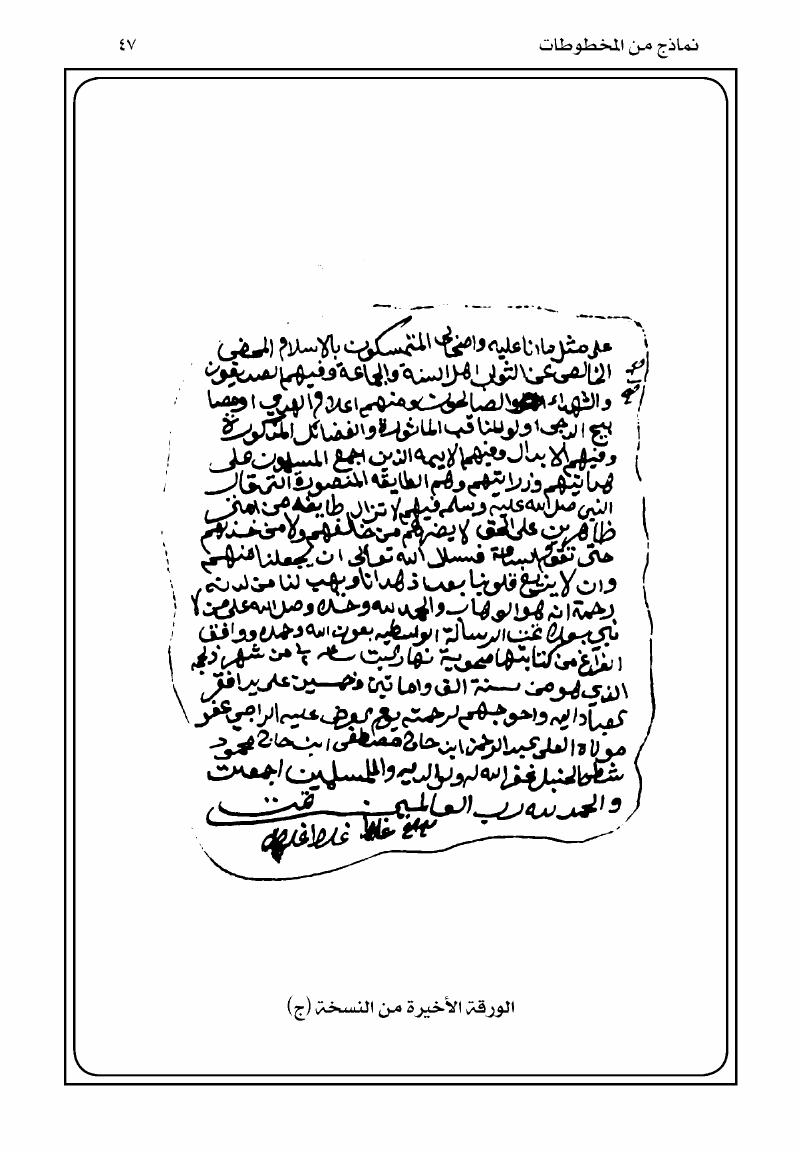 نماذج من المخطوطات ٤٧
على مثل ما انا عليه واصحابي المتمسكون بالاسلام المحض
الخالص عن الشوب اهل السنة والجماعة وفيهم الصديقون
والشهداء والصالحون ومنهم اعلام الهدى و مصا
بيح الدجى اولو المناقب الماثورة والفضائل المذكورة
وفيهم الابدال وفيهم الايمه الذين اجمع المسلمون على
هدايتهم ودرايتهم وهم الطايفه المنصورة التي قال
النبي صلى الله عليه وسلم فيهم لا تزال طايفه من امتي
ظاهرين على الحق لا يضرهم من خالفهم ولا من خذلهم
حتى تقوم الساعة فنسئل الله تعالى ان يجعلنا منهم
وان لا يزيغ قلوبنا بعد اذ هدانا ويهب لنا من لدنه
رحمة انه هو الوهاب والحمد لله وحده وصلى الله على من لا
نبي بعده تمت الرسالة الواسطيه بعون الله وحمده ووافق
الفراغ من كتابتها ضحوية نهار السبت من شهر ذي الحجه
الذي هو من سنة الف وماتين وخمسين على يد افقر
عباد الله واحوجهم لرحمته الراجي عفو
مولاه العلي عبد الرحمن ابن حاج مصطفى ابن حاج محمود
شطي الحنبلي غفر الله له ولوالديه وللمسلمين اجمعين
والحمد لله رب العالمين تمت
الورقة الأخيرة من النسخة (ج)